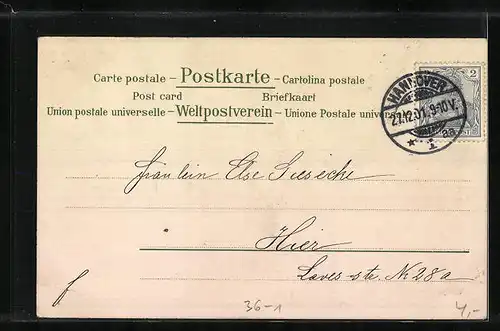 Carte postale – Postkarte – Cartolina postale
Post card Briefkaart
Union postale universelle – Weltpostverein – Unione Postale univers
2
HANNOVER
27.12.01. 9-10V.
* 1
Fräulein Else
Hier
Laves-str. № 28a
36-1
4,-